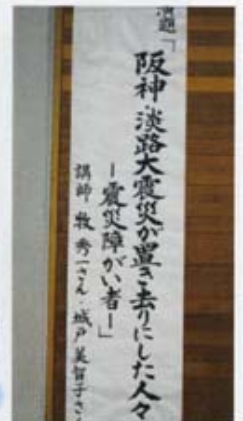 演題「
阪神・淡路大震災が置き去りにした人々
ー震災障がい者ー」
講師 牧 秀一さん・城戸美智子さん